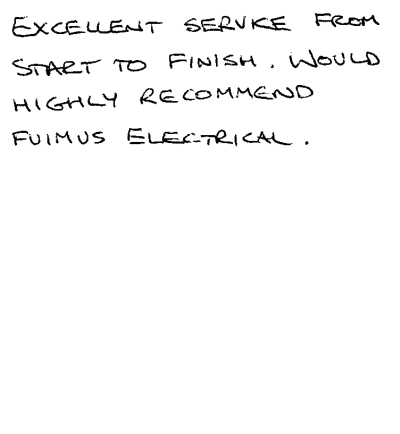 EXCELLENT SERVICE FROM
START TO FINISH. WOULD
HIGHLY RECOMMEND
FUIMUS ELECTRICAL.